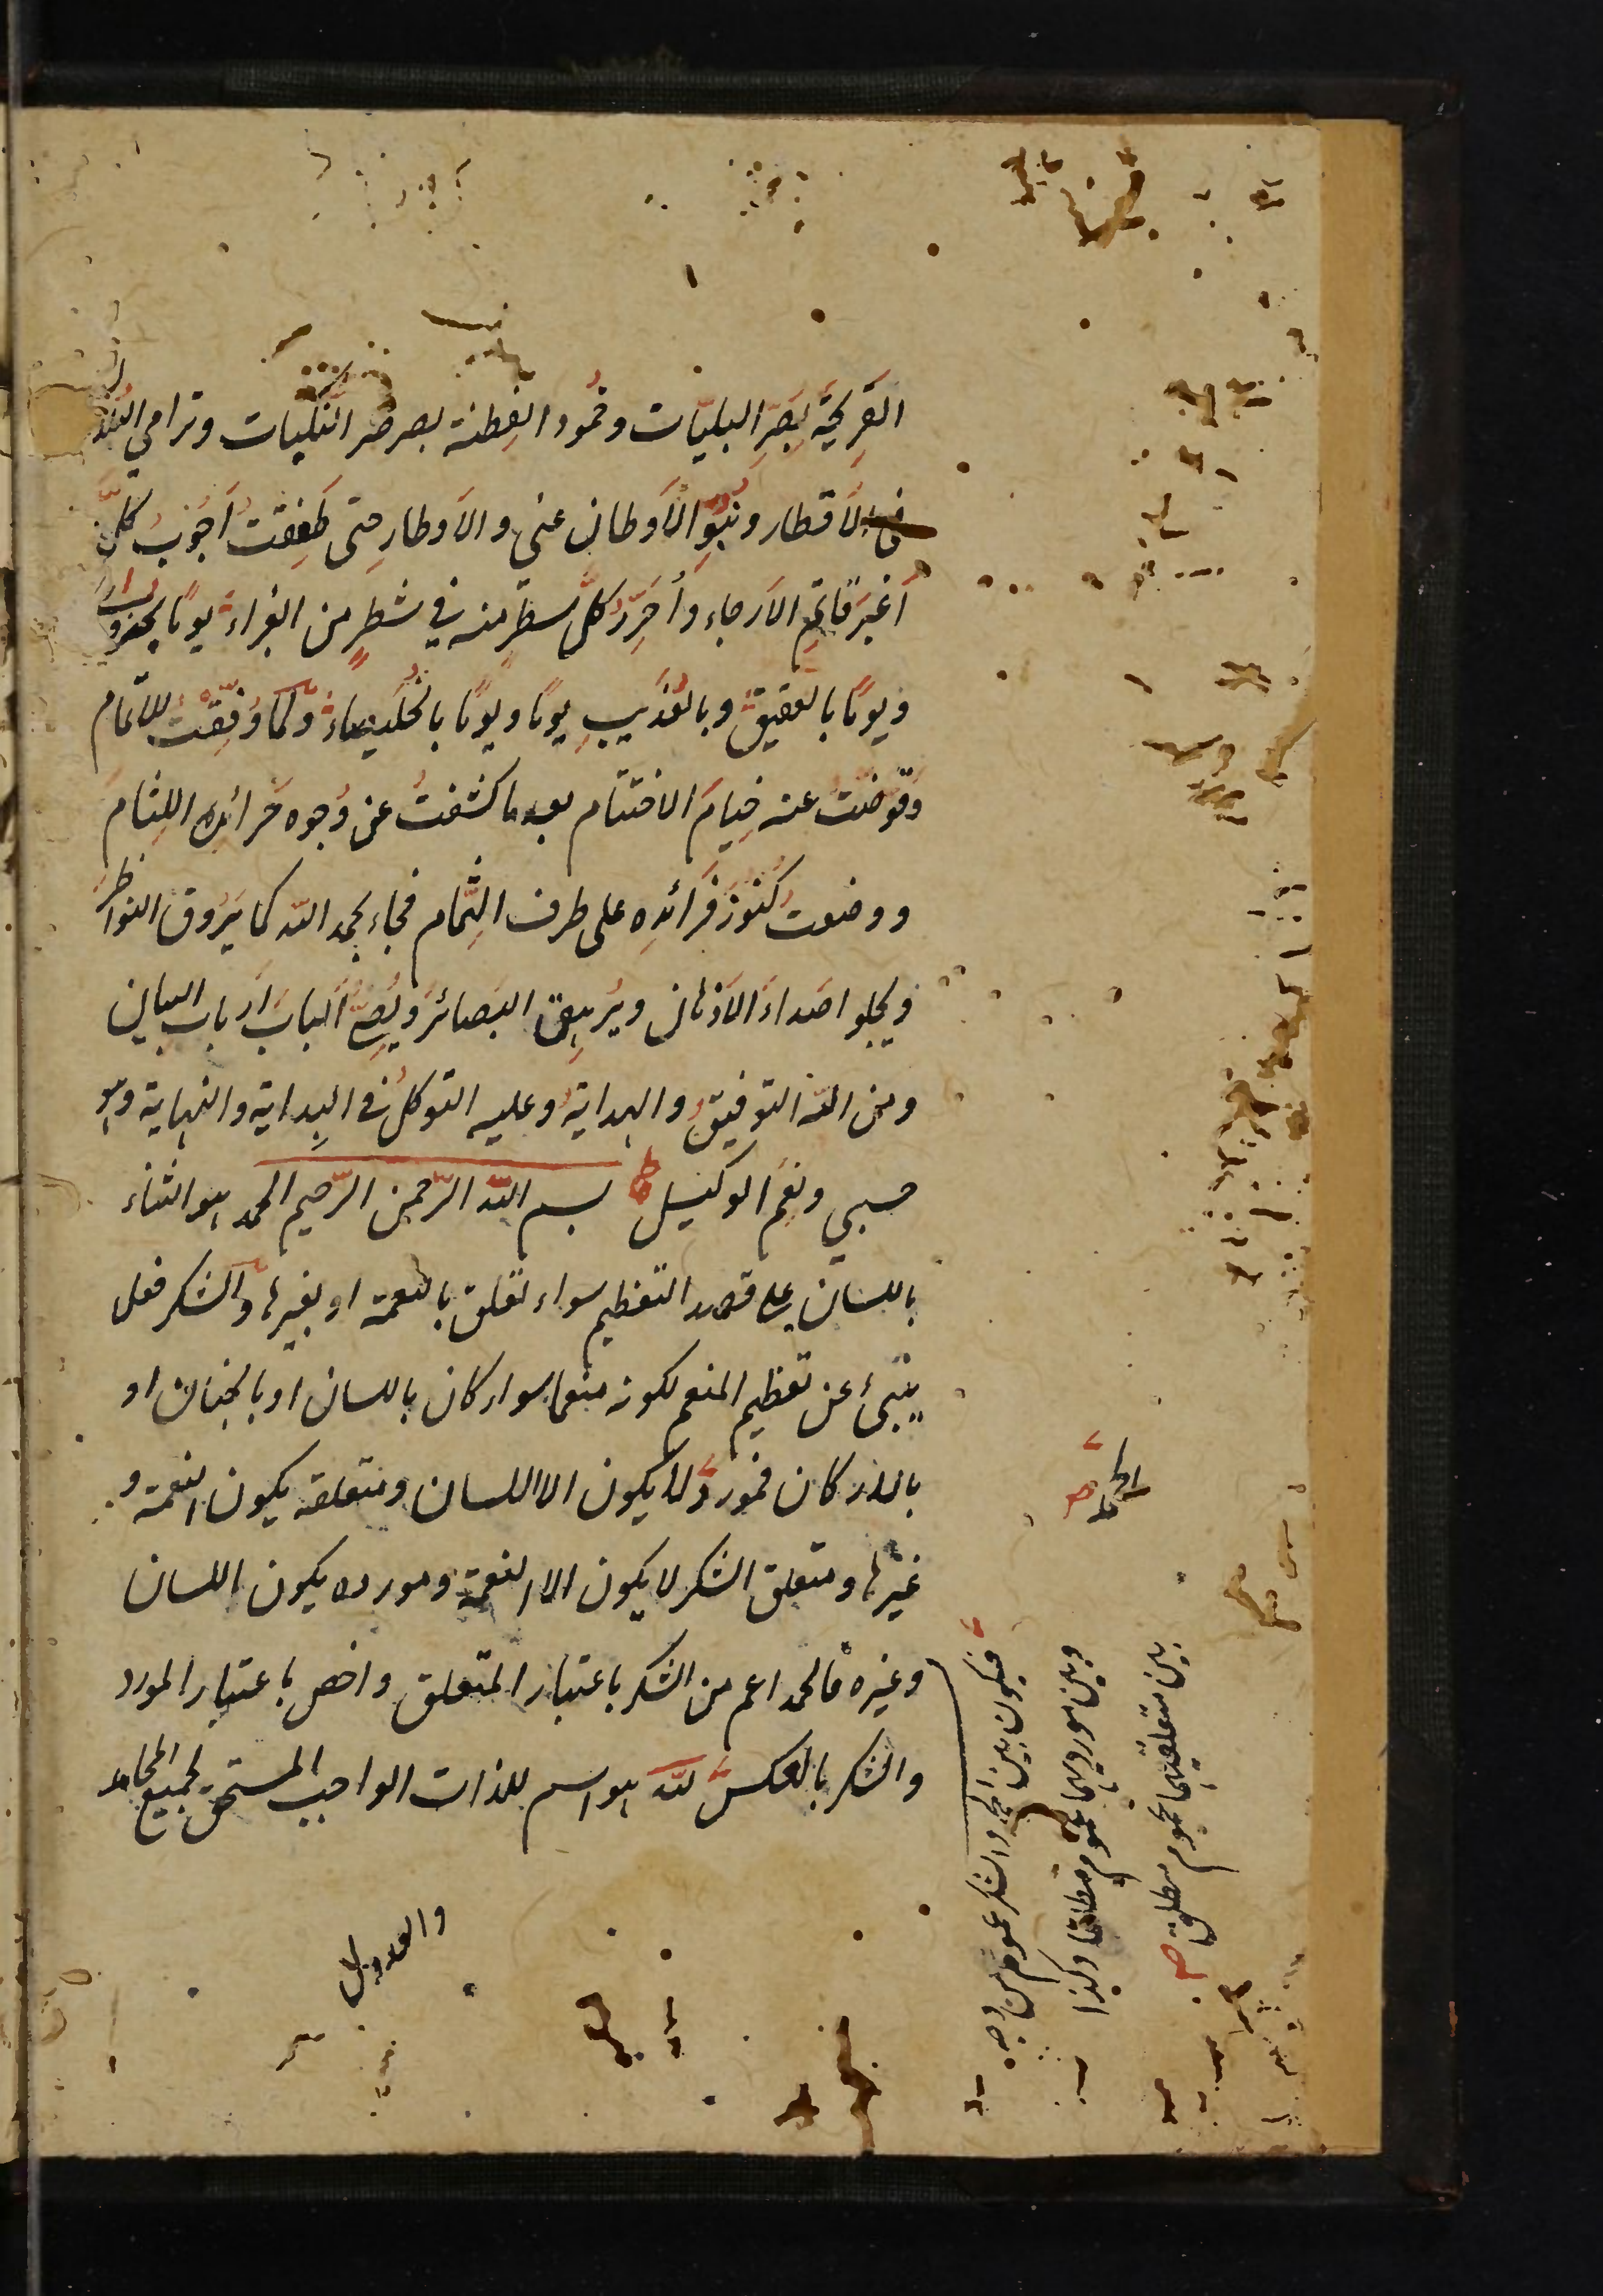 القَرِيحَةِ بِصَرِّ البليّات وخمُود الفِطنة بصرصر النَّكبات وترامي البُلدان
بي الأَقطار ونُبُوّ الأَوطان عني والأَوطارِ حتى طَفِقتُ أَجُوبُ كلَّ
أَغبَرَ قاتِمِ الأَرجاء وأُحَرِّرُ كلَّ سطرٍ منه في شطرٍ من الغبراء يومًا بحزوى
ويومًا بالعَقيق وبالعُذَيبِ يومًا ويومًا بالخُلَيصاءِ ولما وُفِّقتُ للاتمام
وقوّضتُ عنه خِيامَ الاختتام بعدما كشفتُ عن وُجوه خَرائدِه اللِثامَ
ووضعتُ كُنوزَ فَرائدِه على طرف الثُّمام فجاء بحمد الله كما يَرُوق النواظرَ
ويجلو اصداءَ الأَذهان ويُرهِفُ البَصائرَ ويُضِيءُ أَلبابَ أرباب البيان
ومن الله التوفيقُ والهدايةُ وعليه التوكلُ في البِداية والنهاية وهو
حسبي ونِعْمَ الوكيل بسم الله الرّحمن الرّحيم الحمد هو الثناء
باللسان على قصد التعظيم سواء تعلق بالنعمة او بغيرها والشكر فعل
ينبئ عن تعظيم المنعم لكونه منعما سواء كان باللسان او بالجنان او
بالاركان فمورد لا يكون الا اللسان ومتعلقه يكون النعمة و
غيرها ومتعلق الشكر لا يكون الا النعمة ومورده يكون اللسان
وغيره فالحمد اعم من الشكر باعتبار المتعلق واخص باعتبار المورد
والشكر بالعكس لله هو اسم للذات الواجب المستحق لجميع المحامد
والعدول
الحمد صح
فيكون بين الحمد والشكر عموم من وجه
وبين مورديهما عموم مطلقا وكذا
بين متعلقيهما عموم مطلق صح